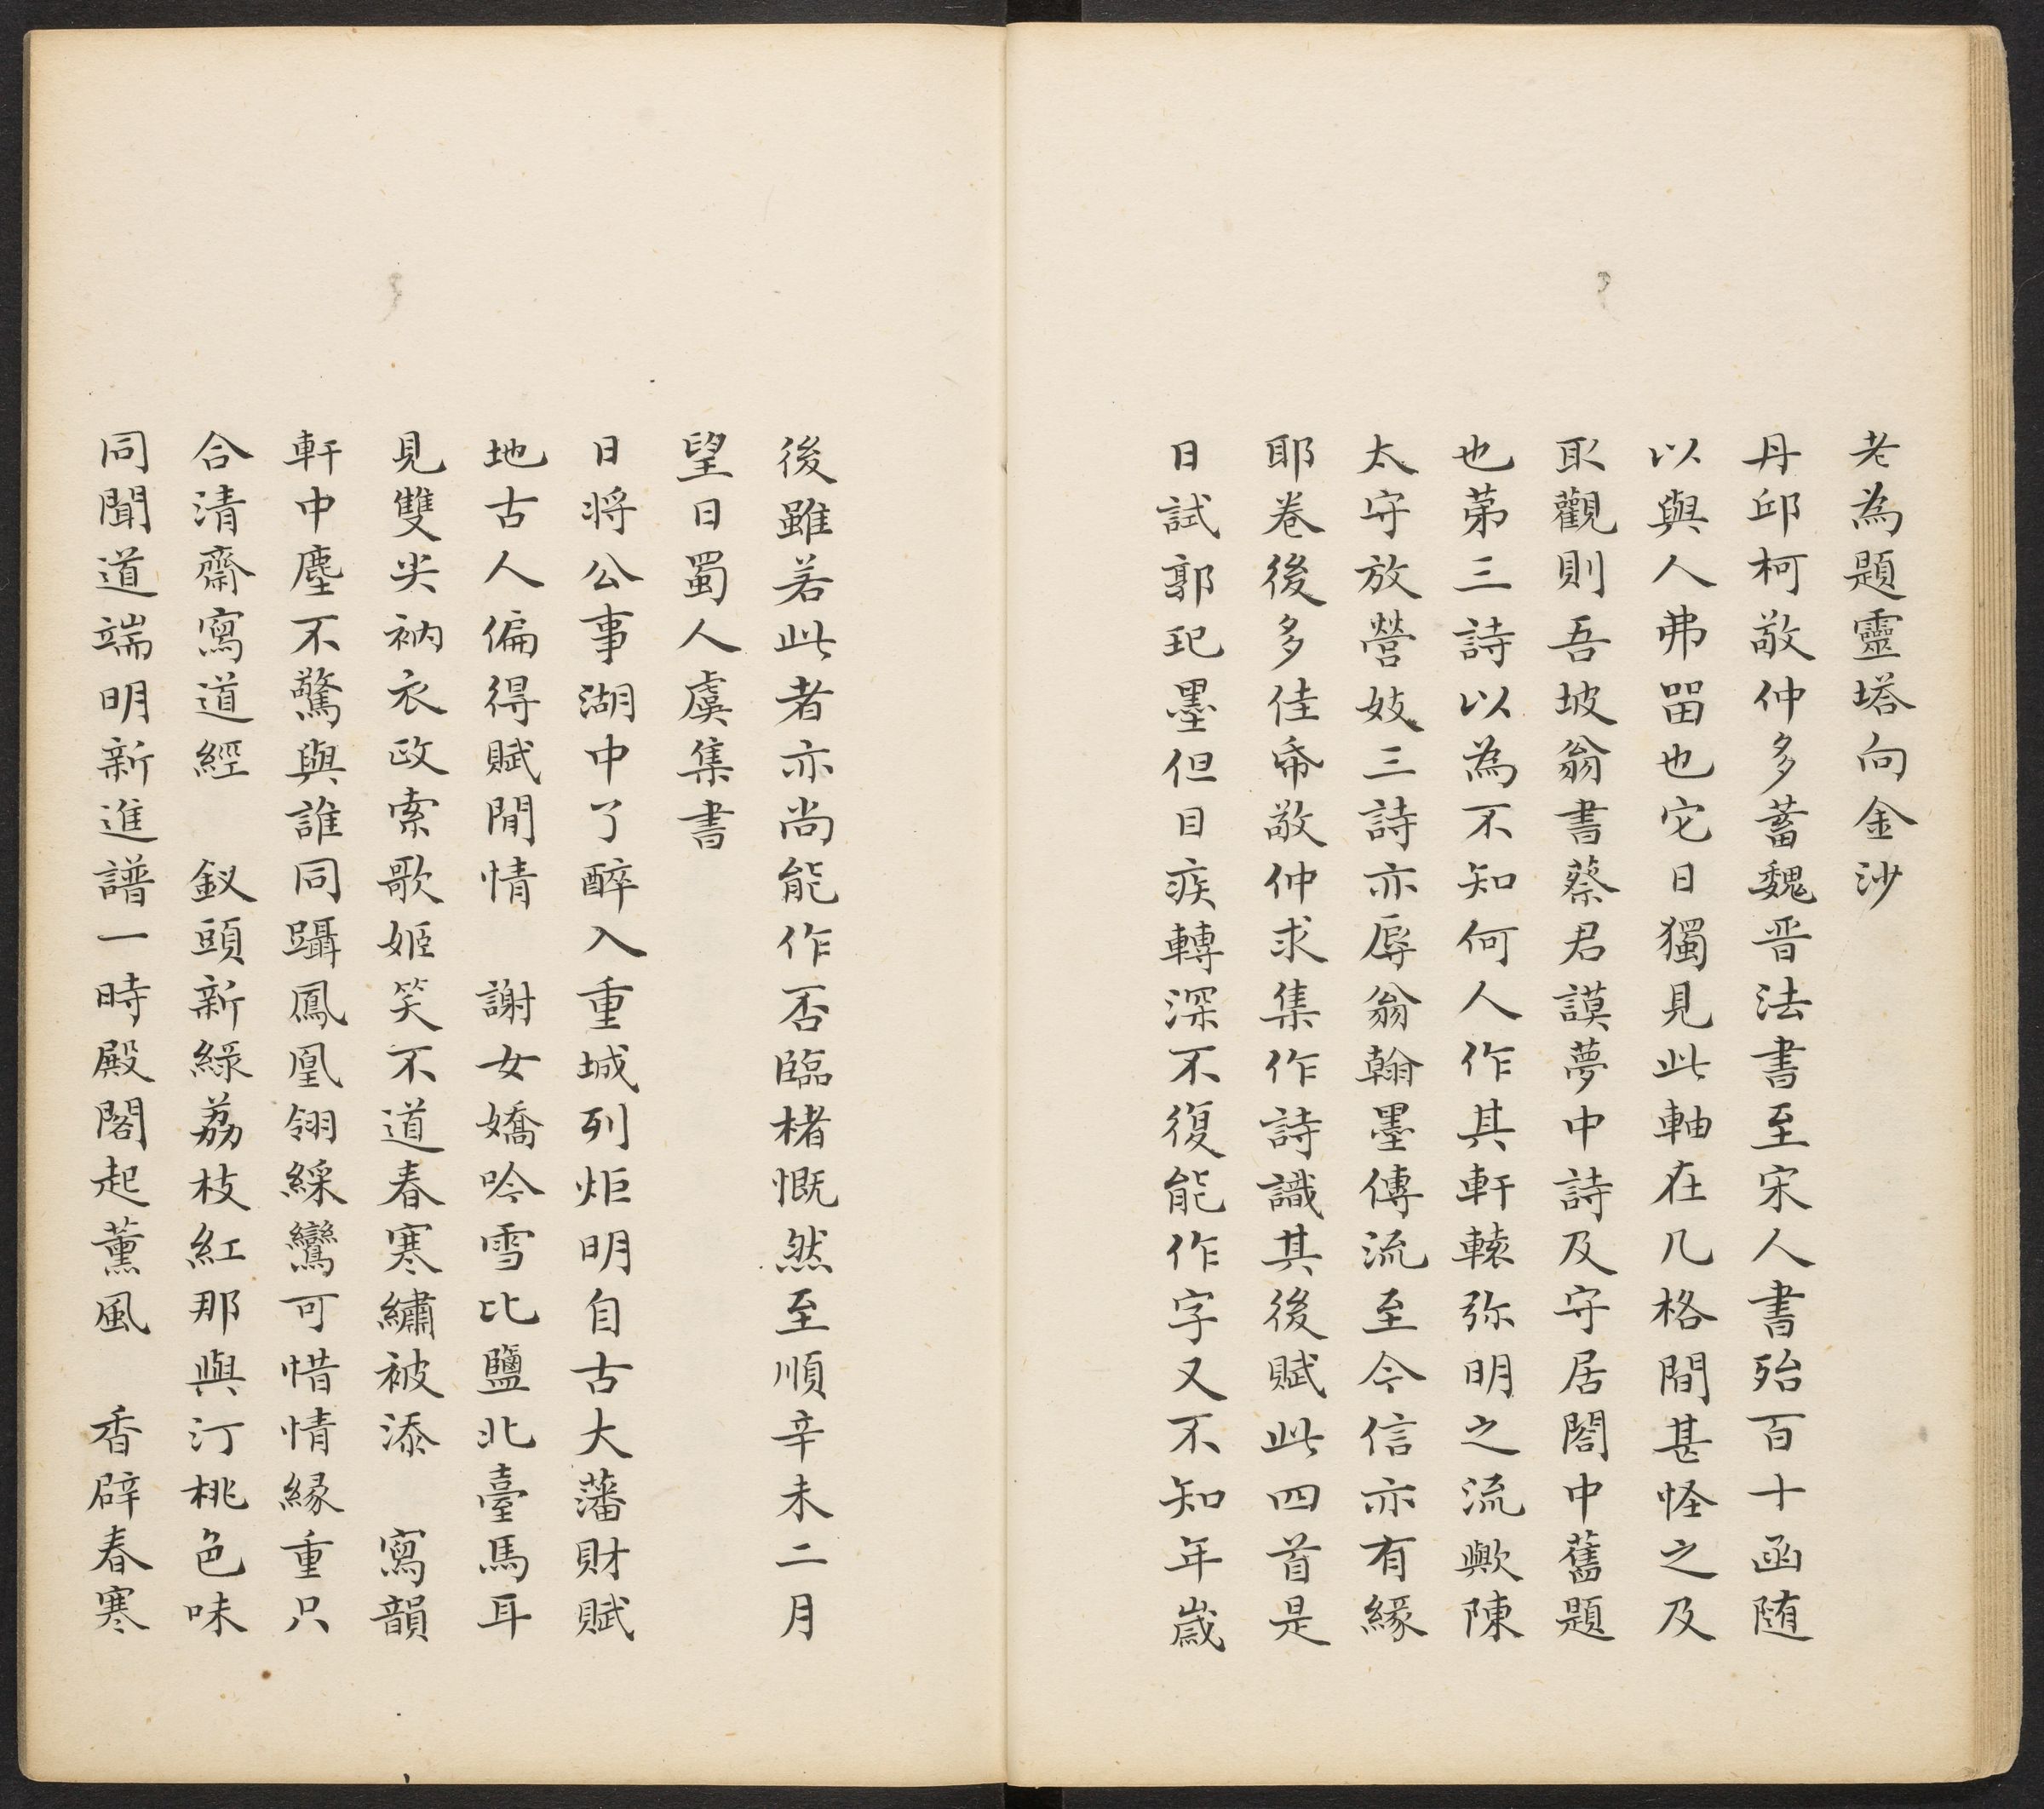 老為題靈塔向金沙
丹邱柯敬仲多蓄魏晋法書至宋人書殆百十函随
以與人弗畱也它日獨見此軸在几格間甚怪之及
取觀則吾坡翁書蔡君謨夢中詩及守居閣中舊題
也苐三詩以為不知何人作其軒轅弥明之流歟陳
太守放營妓三詩亦辱翁翰墨傳流至今信亦有緣
耶卷後多佳帋敬仲求集作詩識其後賦此四首是
日試郭玘墨但目疾轉深不復能作字又不知年歲
後雖若此者亦尚能作否臨楮慨然至順辛未二月
望日蜀人虞集書
日将公事湖中了醉入重城列炬明自古大藩財賦
地古人偏得賦閒情　謝女嬌吟雪比鹽北臺馬耳
見雙尖衲衣政索歌姬笑不道春寒繡被添　寫韻
軒中塵不驚與誰同躡鳳凰翎綵鸞可惜情緣重只
合清齋寫道經　釵頭新綠荔枝紅那與汀桃色味
同聞道端明新進譜一時殿閣起薰風　香辟春寒